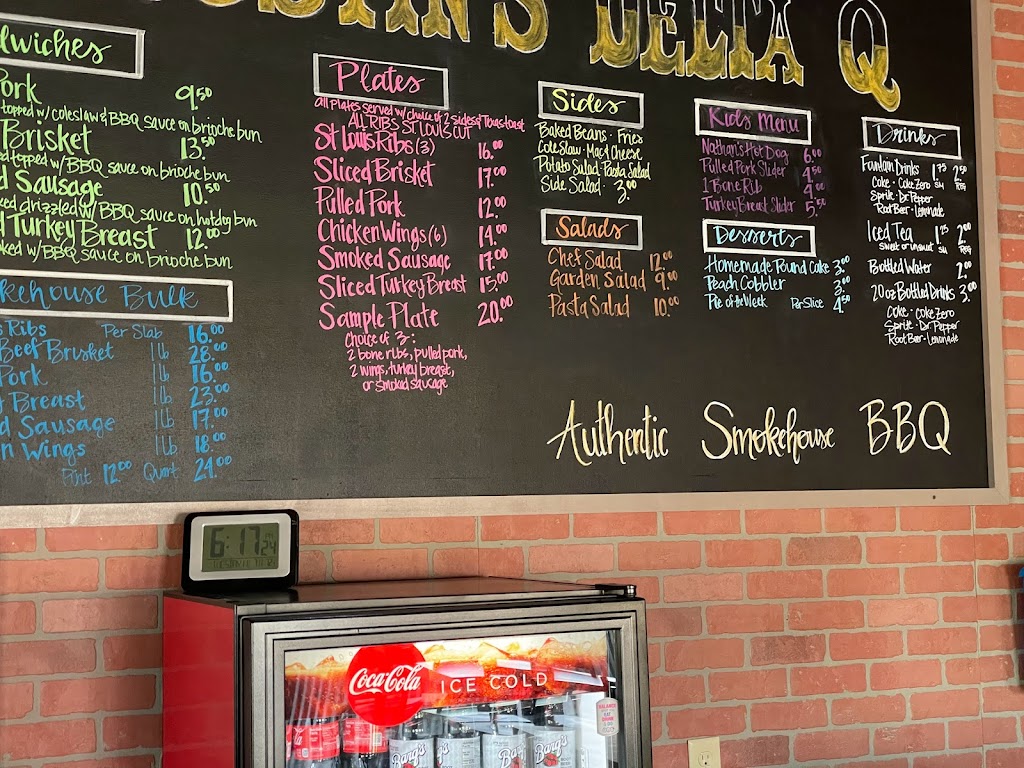 DELTA Q
dwiches
Pork 9.50
topped w/ coleslaw & BBQ sauce on brioche bun
Brisket 13.50
topped w/ BBQ sauce on brioche bun
d Sausage 10.50
drizzled w/ BBQ sauce on hotdog bun
d Turkey Breast 12.00
w/ BBQ sauce on brioche bun
kehouse Bulk
s Ribs Per Slab 16.00
Beef Brisket 1 lb 28.00
Pork 1 lb 16.00
Breast 1 lb 23.00
d Sausage 1 lb 17.00
n Wings 1 lb 18.00
Pint 12.00 Quart 24.00
Plates
all Plates served w/ choice of 2 sides & Texas toast
ALL RIBS ST. LOUIS CUT
St Louis Ribs (3) 16.00
Sliced Brisket 17.00
Pulled Pork 12.00
Chicken Wings (6) 14.00
Smoked Sausage 17.00
Sliced Turkey Breast 15.00
Sample Plate 20.00
Choice of 3:
2 bone ribs, pulled pork,
2 wings, turkey breast,
or smoked sausage
Sides
Baked Beans · Fries
Coleslaw · Mac & Cheese
Potato Salad · Pasta Salad
Side Salad · 3.00
Salads
Chef Salad 12.00
Garden Salad 9.00
Pasta Salad 10.00
Kids Menu
Nathan's Hot Dog 6.00
Pulled Pork Slider 4.50
1 Bone Rib 4.00
Turkey Breast Slider 5.50
Desserts
Homemade Pound Cake 3.00
Peach Cobbler 3.00
Pie of the Week Per Slice 4.50
Drinks
Fountain Drinks 1.75 SM 2.50 REG
Coke · Coke Zero
Sprite · Dr. Pepper
Root Beer · Lemonade
Iced Tea 1.75 2.00
sweet or unsweet SM REG
Bottled Water 2.00
20 oz Bottled Drinks 3.00
Coke · Coke Zero
Sprite · Dr. Pepper
Root Beer · Lemonade
Authentic Smokehouse BBQ
6:17 24
Coca-Cola ICE COLD
Barq's Barq's Barq's